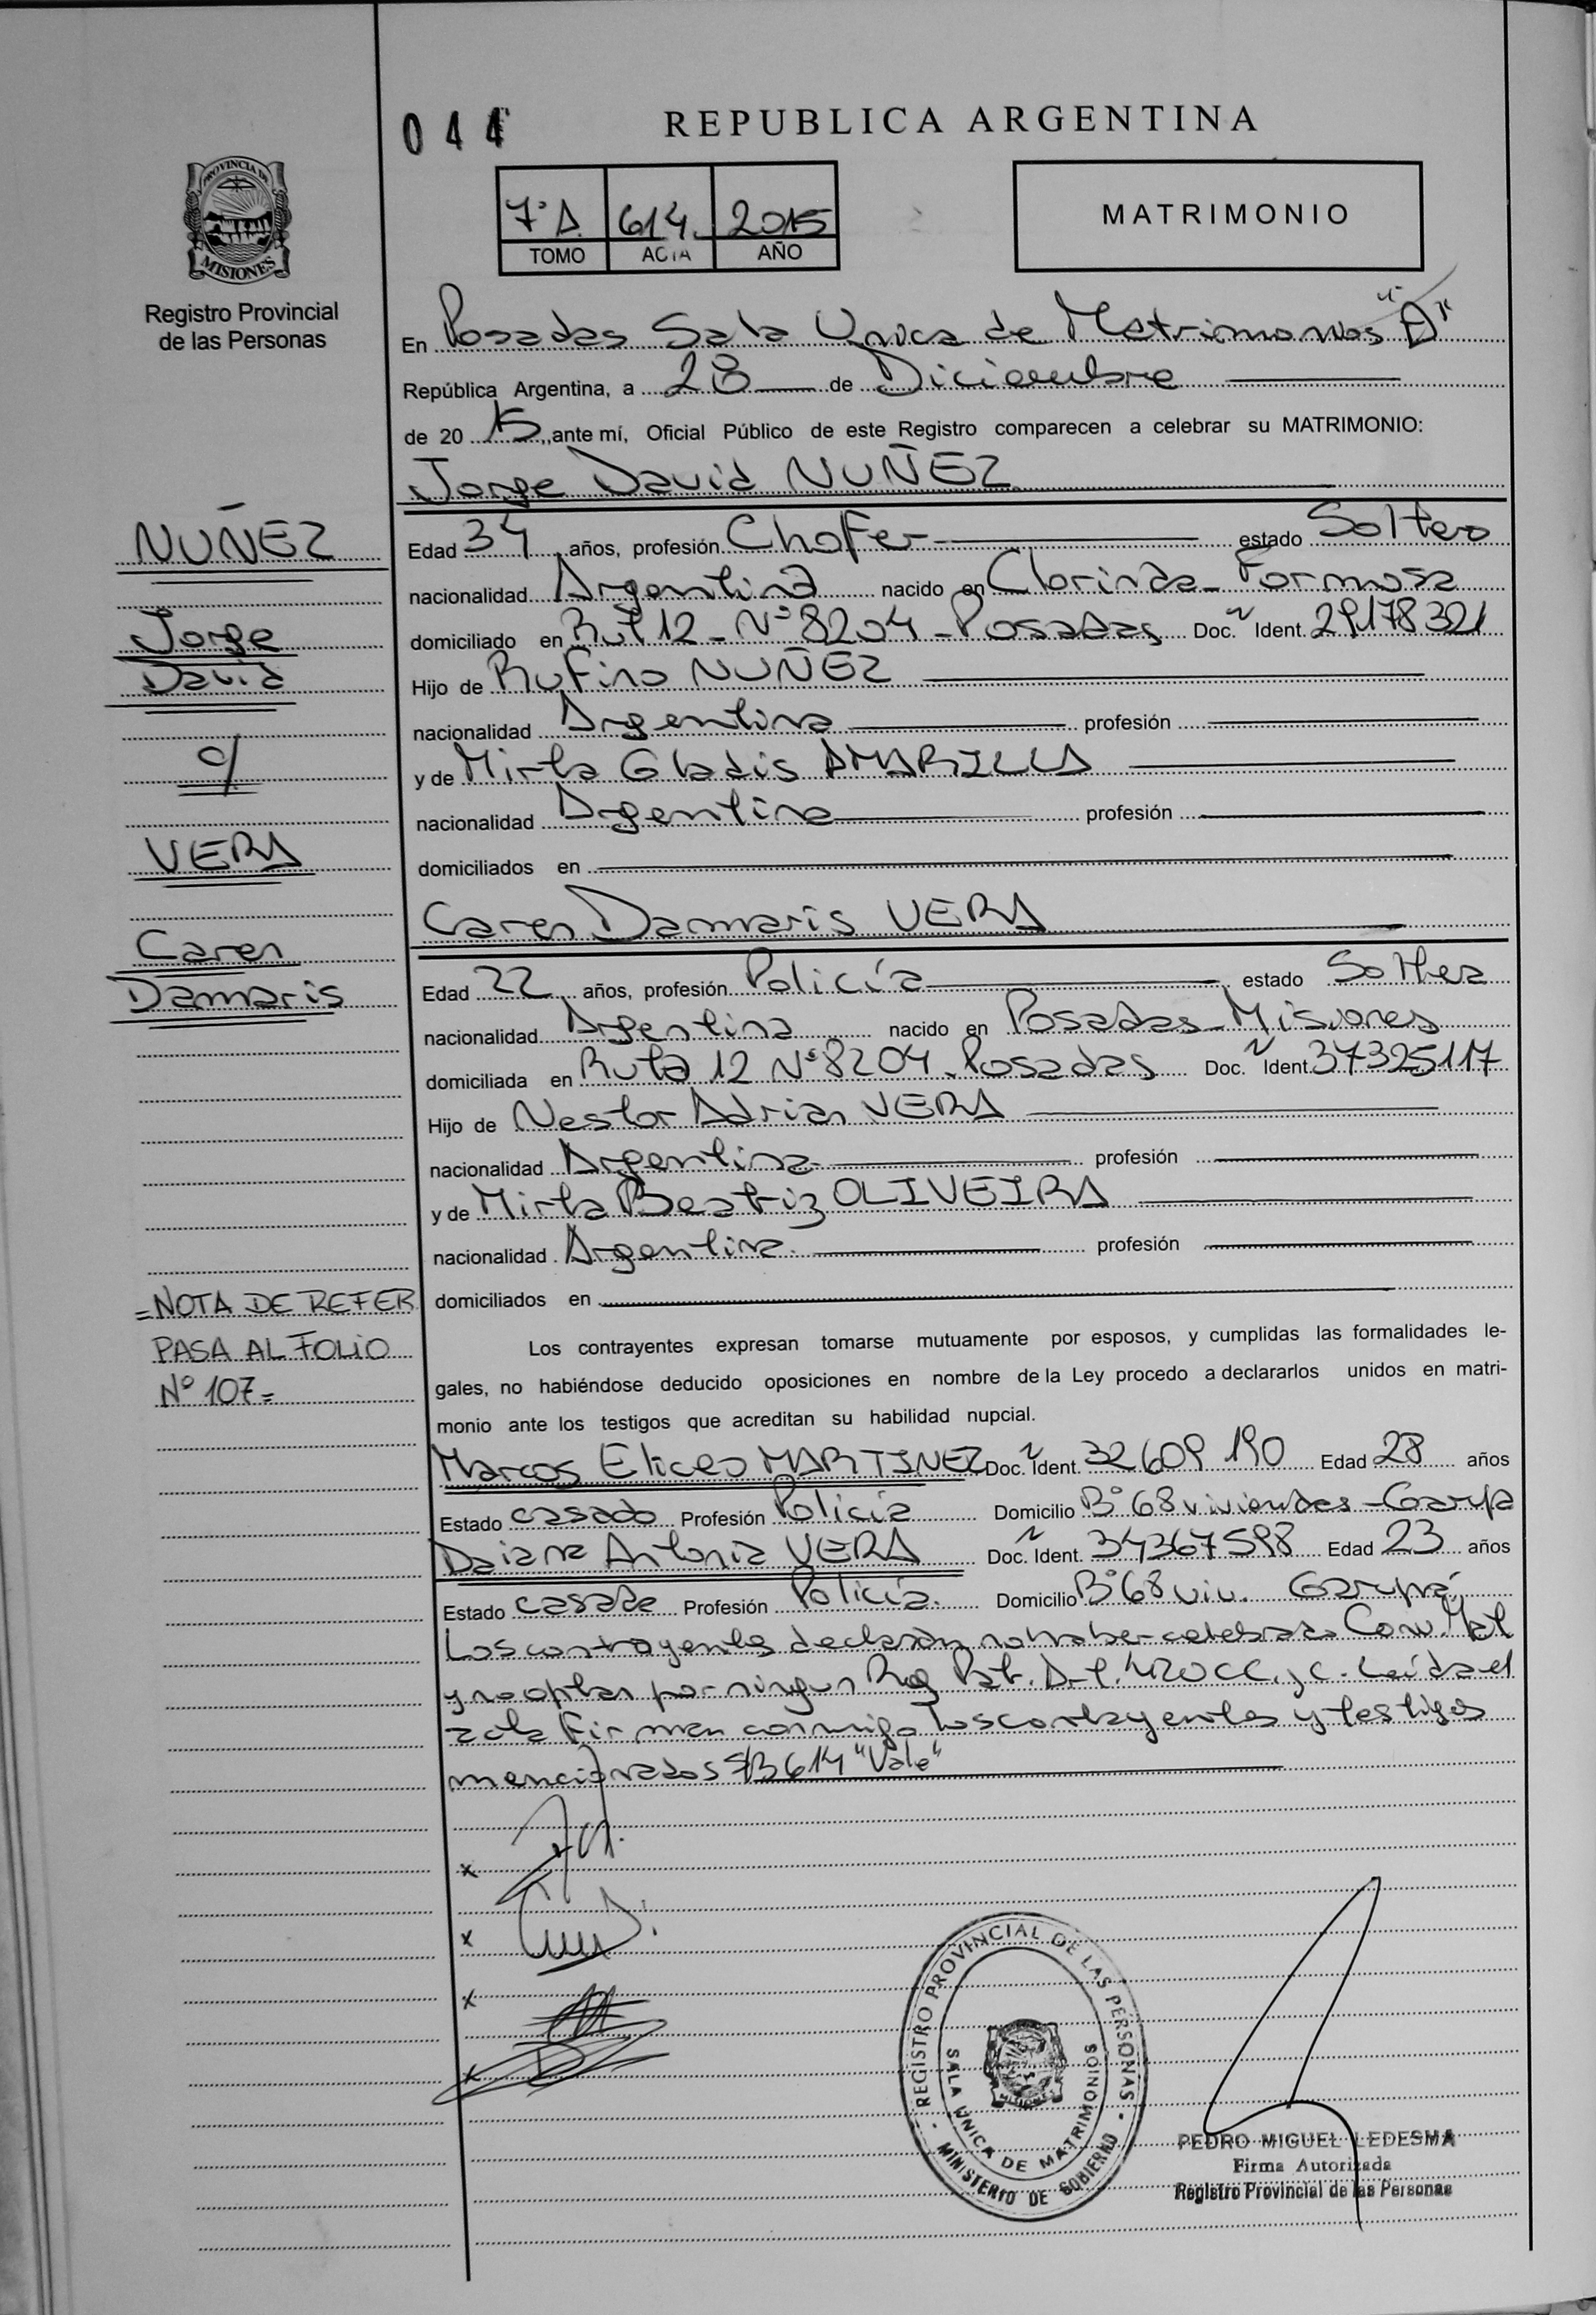 044
REPUBLICA ARGENTINA
PROVINCIA DE
MISIONES
Registro Provincial
de las Personas
7º A. 614. 2015
TOMO ACTA AÑO
MATRIMONIO
En Posadas Sala Unica de Matrimonios "A"
República Argentina, a 28 de Diciembre
de 20 15, ante mí, Oficial Público de este Registro comparecen a celebrar su MATRIMONIO:
Jorge David NUÑEZ
NUÑEZ
Jorge
David
c/
VERA
Caren
Damaris
Edad 34 años, profesión Chofer estado Soltero
nacionalidad Argentina nacido en Clorinda - Formosa
domiciliado en Rut 12 - Nº 8204 - Posadas Doc. Ident. 29178321
Hijo de Rufino NUÑEZ
nacionalidad Argentina profesión
y de Mirta Gladis AMARILLA
nacionalidad Argentina profesión
domiciliados en
Caren Damaris VERA
Edad 22 años, profesión Policía estado Soltera
nacionalidad Argentina nacido en Posadas - Misiones
domiciliada en Ruta 12 Nº 8204 - Posadas Doc. Ident. 37325117
Hijo de Nestor Adrian VERA
nacionalidad Argentina profesión
y de Mirta Beatriz OLIVEIRA
nacionalidad Argentina profesión
domiciliados en
=NOTA DE REFER
PASA AL FOLIO
Nº 107=
Los contrayentes expresan tomarse mutuamente por esposos, y cumplidas las formalidades le-
gales, no habiéndose deducido oposiciones en nombre de la Ley procedo a declararlos unidos en matri-
monio ante los testigos que acreditan su habilidad nupcial.
Marcos Eliceo MARTINEZ Doc. Ident. 32609190 Edad 28 años
Estado casado Profesión Policía Domicilio Bº 68 viviendas - Garupa
Daiana Antonia VERA Doc. Ident. 34367598 Edad 23 años
Estado casada Profesión Policía. Domicilio Bº 68 viv. Garupá
Los contrayentes declaran no haber celebrado Conv. Mat
y no optan por ningun Reg Pat. Art. 420 CC. y C. Leída el
acta firman conmigo los contrayentes y testigos
mencionados S/B 614 "Vale"
x
x
x
x
REGISTRO PROVINCIAL DE LAS PERSONAS
SALA UNICA DE MATRIMONIOS
MINISTERIO DE GOBIERNO
PEDRO MIGUEL LEDESMA
Firma Autorizada
Registro Provincial de las Personas